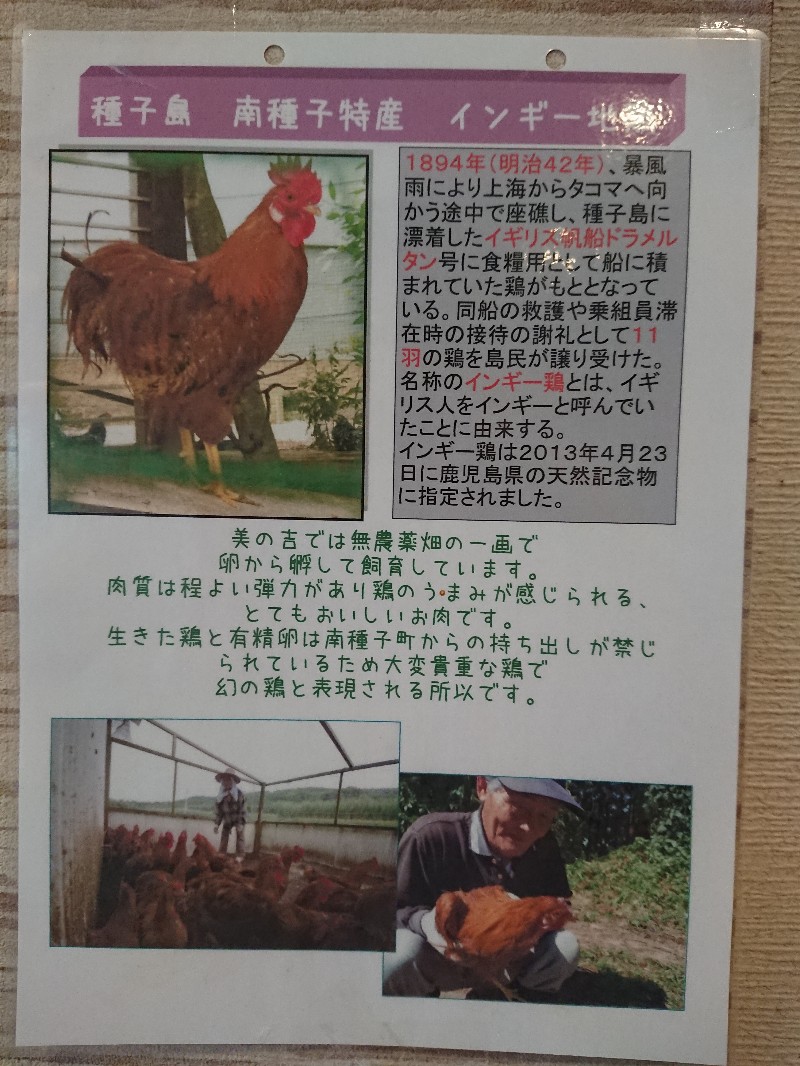 種子島　南種子特産　インギー地
1894年(明治42年)、暴風
雨により上海からタコマへ向
かう途中で座礁し、種子島に
漂着したイギリス帆船ドラメル
タン号に食糧用として船に積
まれていた鶏がもととなって
いる。同船の救護や乗組員滞
在時の接待の謝礼として11
羽の鶏を島民が譲り受けた。
名称のインギー鶏とは、イギ
リス人をインギーと呼んでい
たことに由来する。
インギー鶏は2013年4月23
日に鹿児島県の天然記念物
に指定されました。
美の吉では無農薬畑の一画で
卵から孵して飼育しています。
肉質は程よい弾力があり鶏のうまみが感じられる、
とてもおいしいお肉です。
生きた鶏と有精卵は南種子町からの持ち出しが禁じ
られているため大変貴重な鶏で
幻の鶏と表現される所以です。